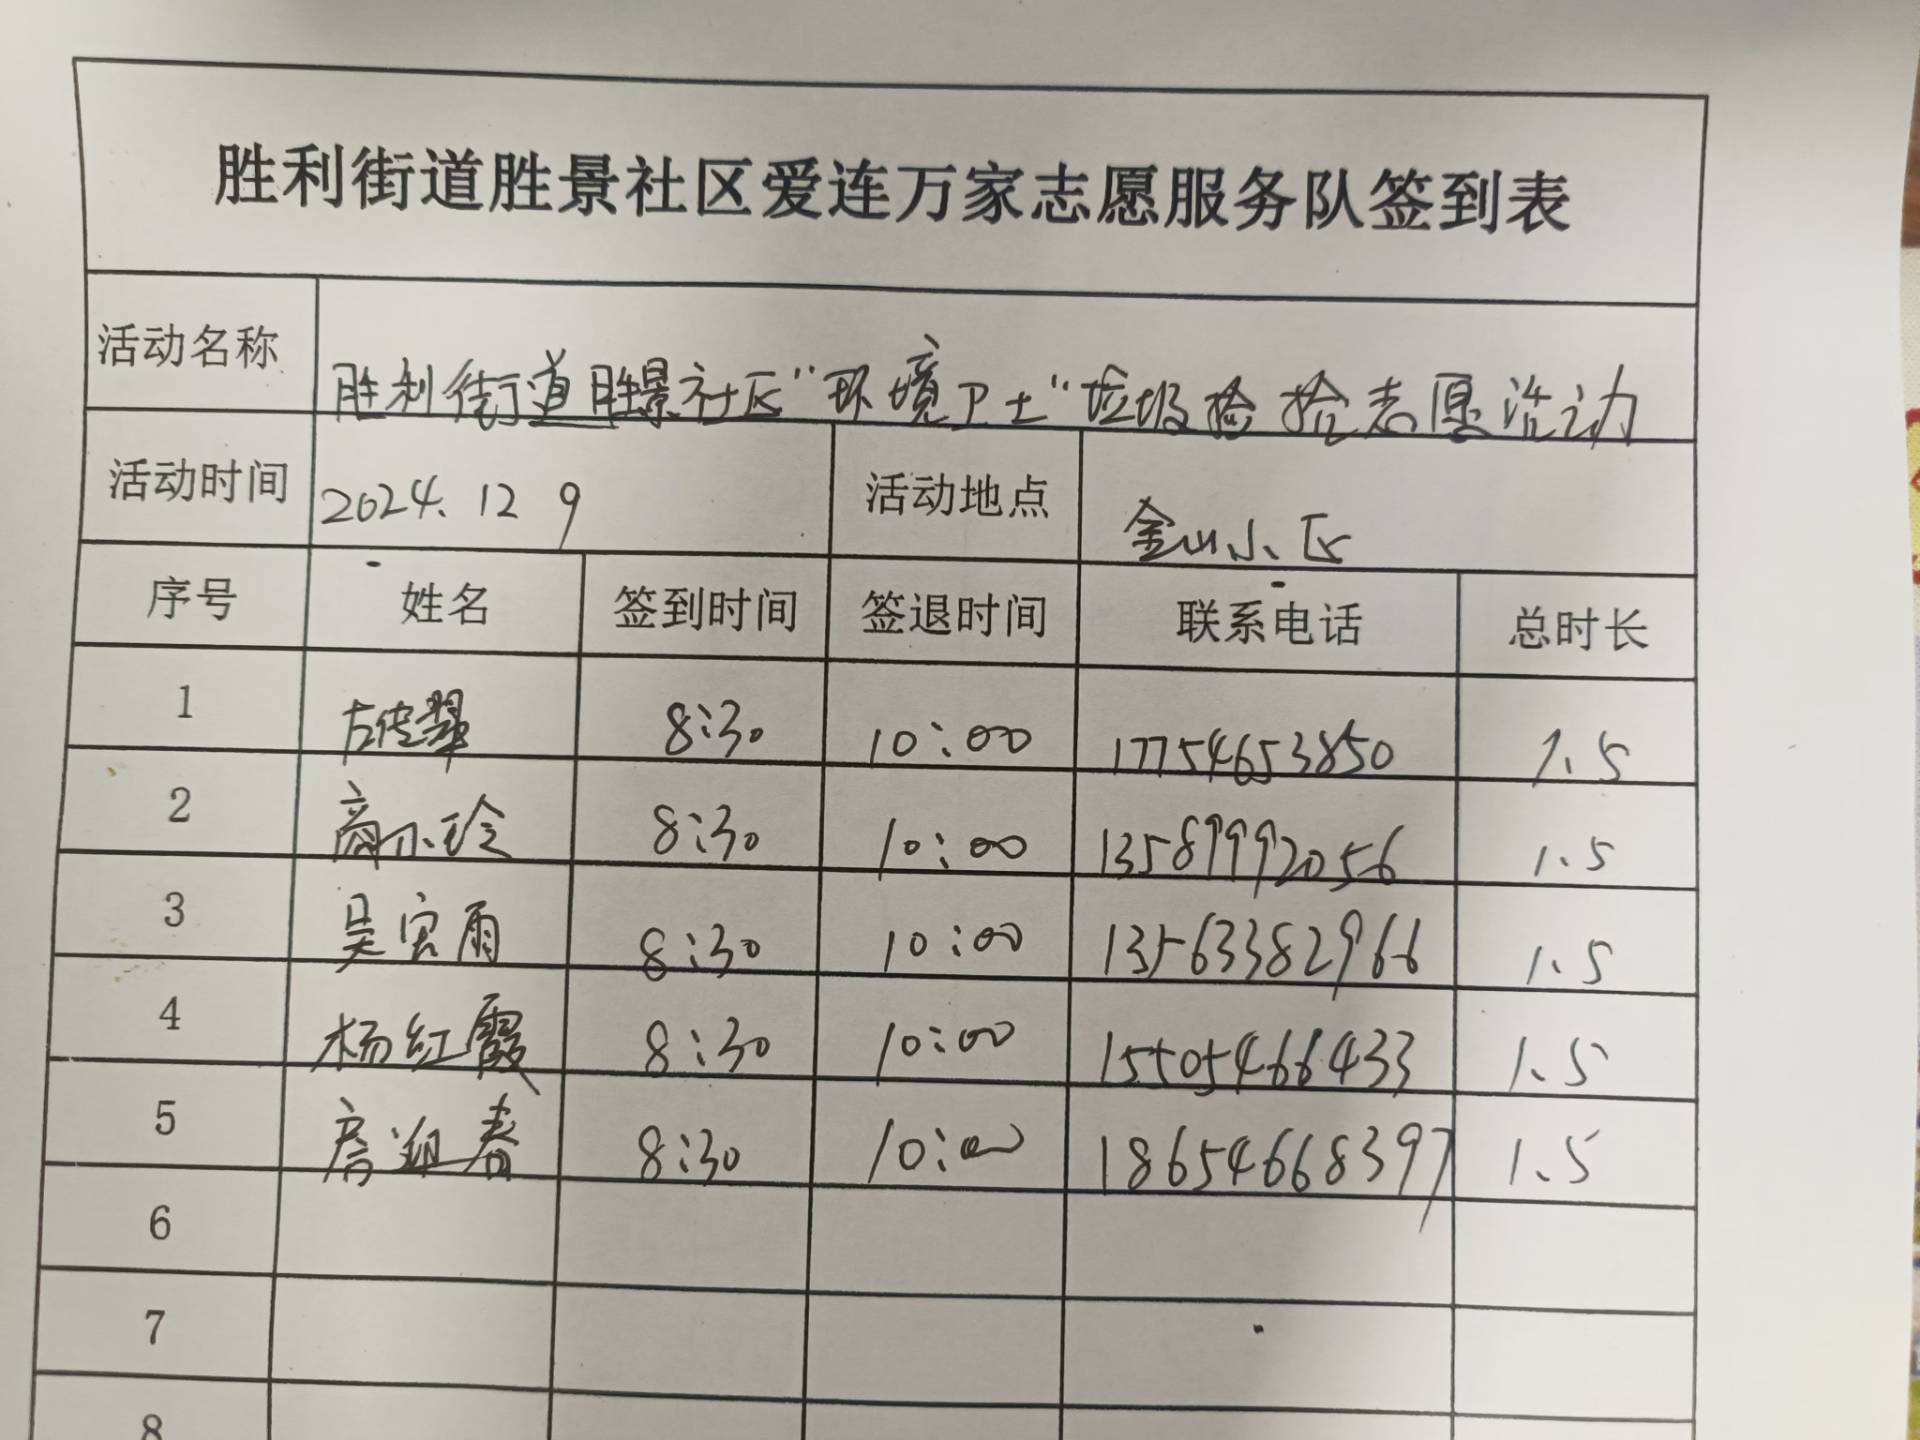 胜利街道胜景社区爱连万家志愿服务队签到表
活动名称 胜利街道胜景社区"环境卫士"垃圾捡拾志愿活动
活动时间 2024.12 9 活动地点 金山小区
序号 姓名 签到时间 签退时间 联系电话 总时长
1 8:30 10:00 17754653850 1.5
2 商小玲 8:30 10:00 13589992056 1.5
3 吴寅雨 8:30 10:00 13563382966 1.5
4 杨红霞 8:30 10:00 15505466433 1.5
5 房迎春 8:30 10:00 18654668397 1.5
6
7
8